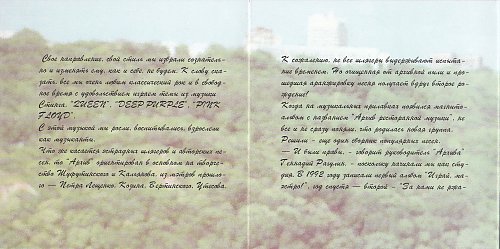 Свое направление, свой стиль мы избрали сознатель-
но и изменять ему, как и себе, не будем. К слову ска-
зать, все мы очень любим классический рок и в свобод-
ное время с удовольствием играем темы из музыки
Стинга, "QUEEN", "DEEP PURPLE", "PINK
FLOYD".
С этой музыкой мы росли, воспитывались, взрослели
как музыканты.
Что же касается эстрадных шлягеров и авторских пе-
сен, то "Архив" ориентирован в основном на творче-
ство Шуфутинского и Калмыкова, из мэтров прошло-
го — Петра Лещенко, Козина, Вертинского, Утесова.
К сожалению, не все шлягеры выдерживают испыта-
ние временем. Но очищенная от архивной пыли и про-
шедшая аранжировку песня получает вдруг второе ро-
ждение!
Когда на музыкальных прилавках появился магнито-
альбом с названием "Архив ресторанной музыки", не
все и не сразу поняли, что родилась новая группа.
Решили - еще один сборник популярных песен.
— И были правы, - говорит руководитель "Архива"
Геннадий Рагулин, - поскольку начинали мы как сту-
дия. В 1992 году записали первый альбом "Играй, ма-
эстро!", год спустя — второй - "За нами не ржа-